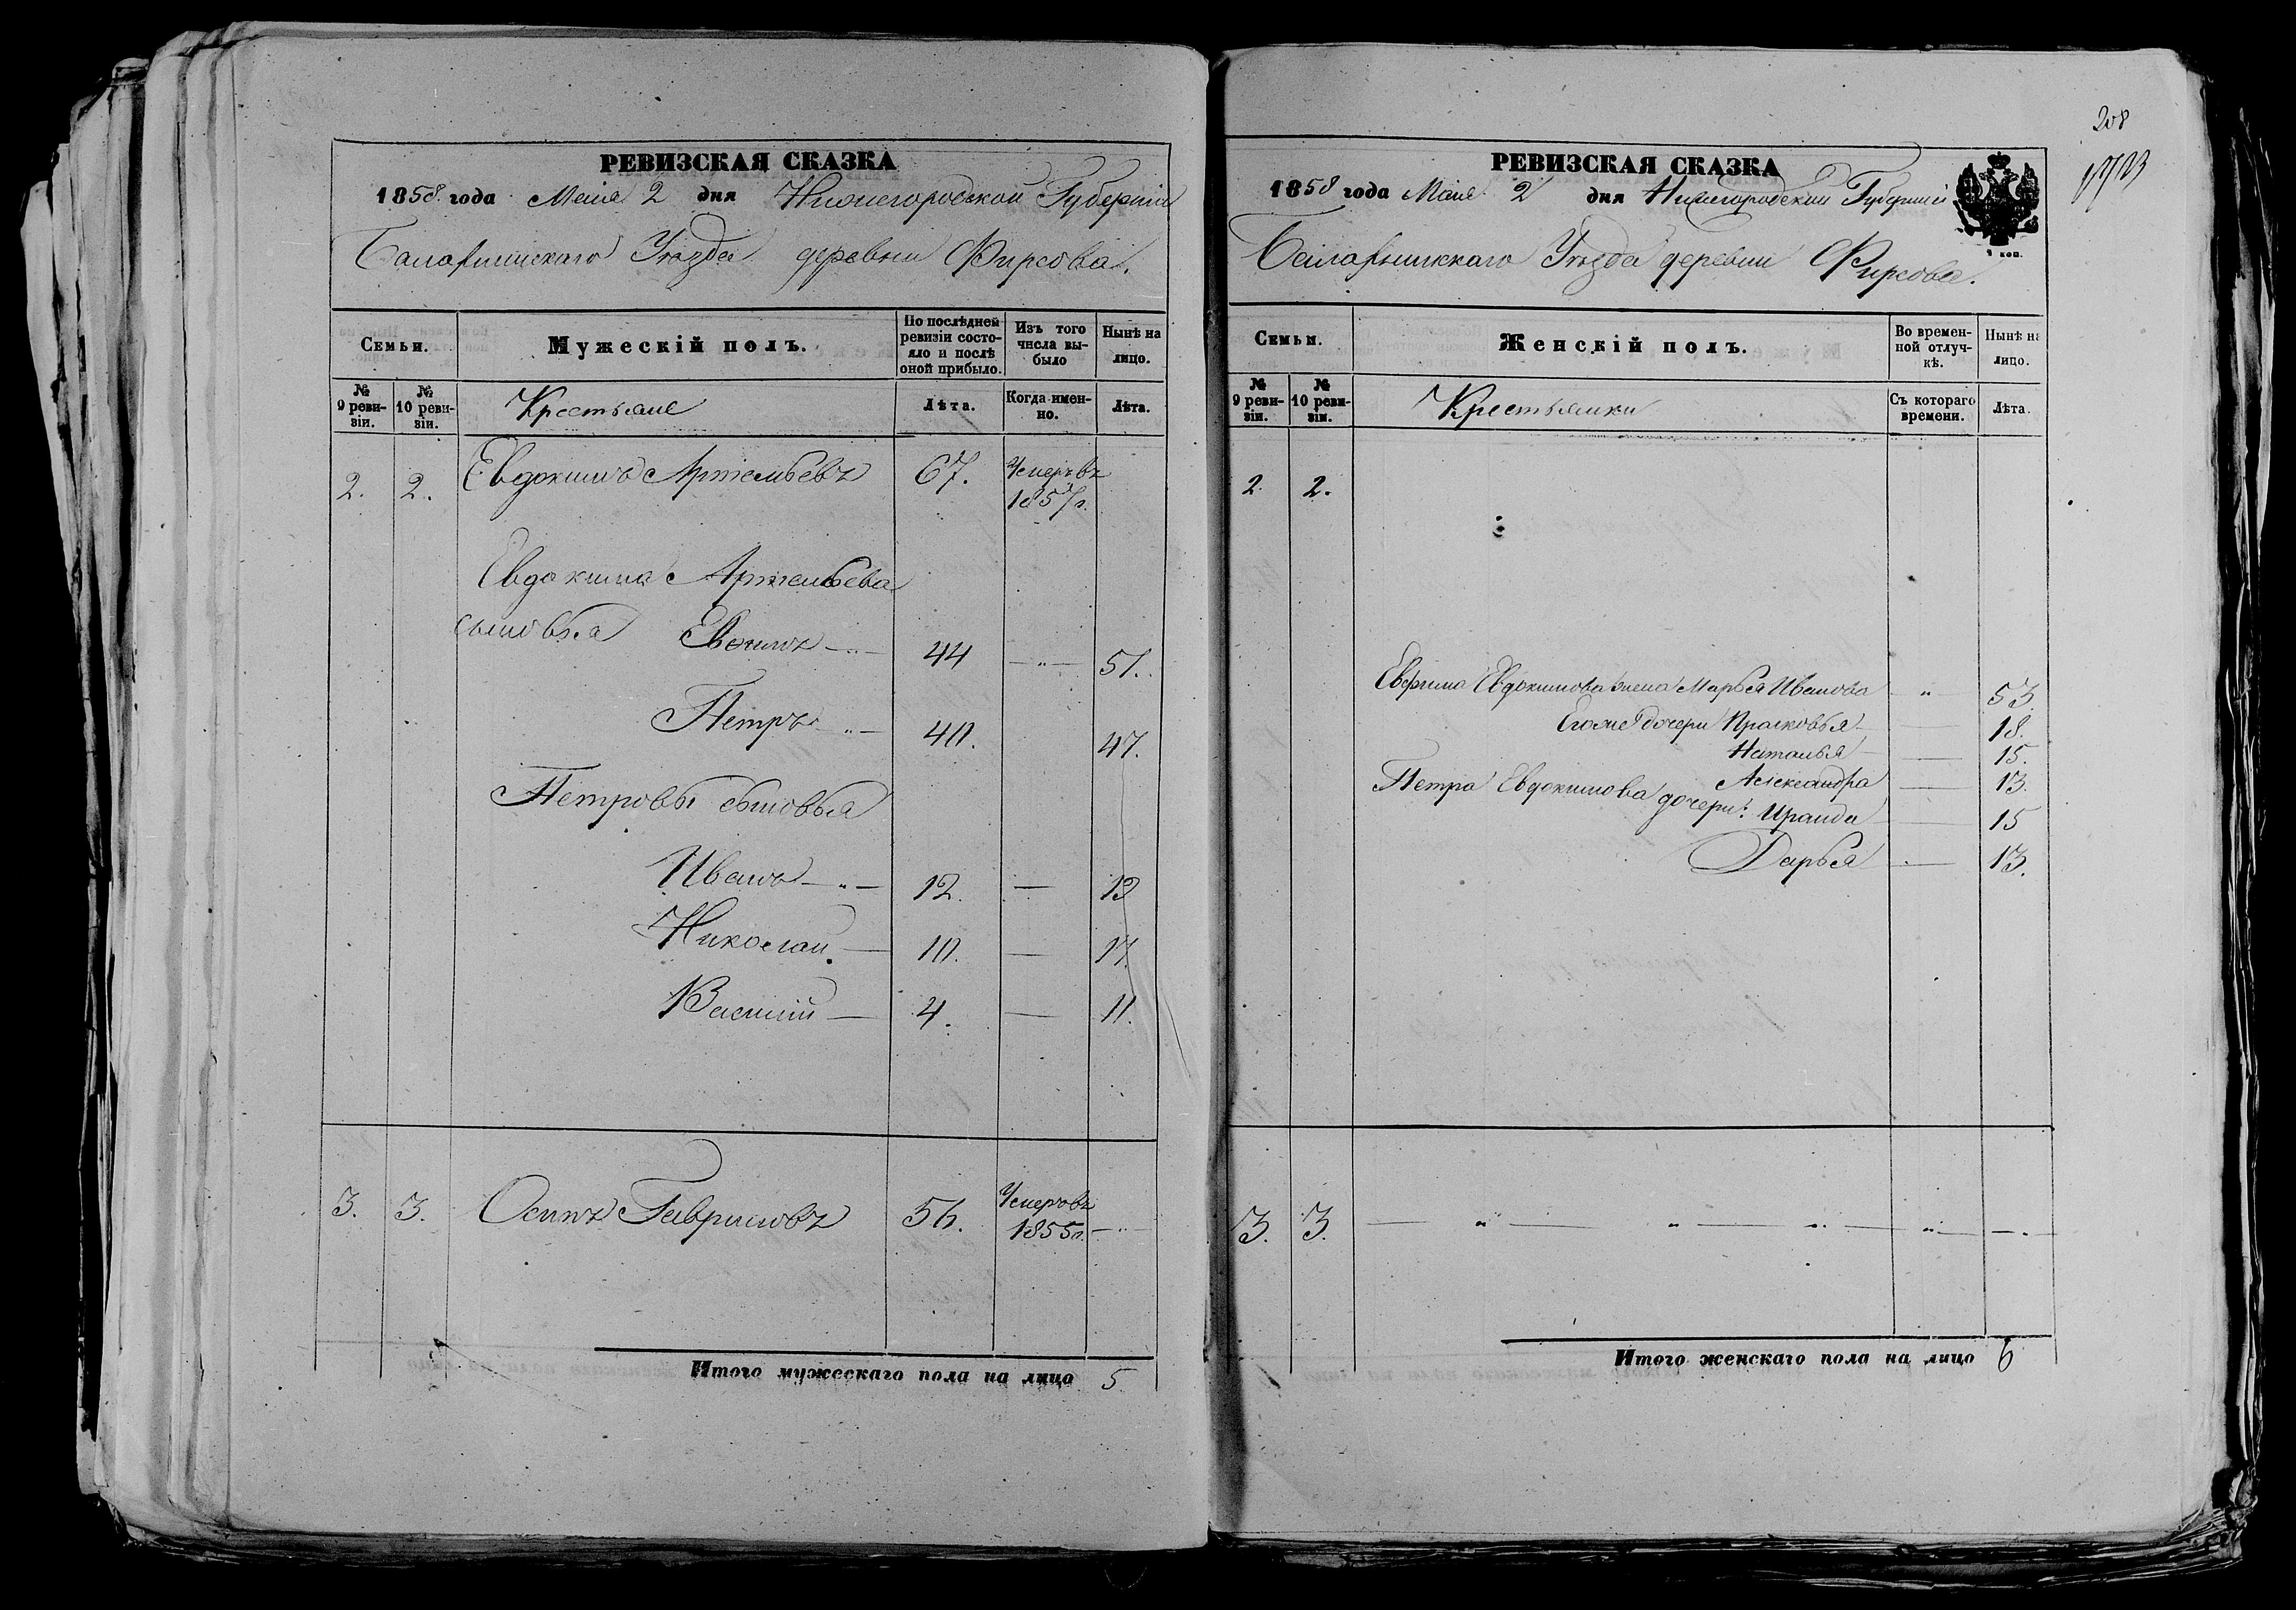 РЕВИЗСКАЯ СКАЗКА
1858 года Маія 2 дня Нижегородской Губерніи
Балахнинскаго Уѣзда деревни Фирсова.
Семьи.
Мужескій полъ.
По послѣдней ревизіи состояло и послѣ оной прибыло.
Изъ того числа выбыло
Нынѣ на лицо.
№ 9 ревизіи.
№ 10 ревизіи.
Крестьяне
Лѣта.
Когда именно.
Лѣта.
2. 2. Евдокимъ Артемьевъ 67. Умеръ въ
1857г.
Евдокима Артемьева
сыновья Евѳимъ -"- 44 -"- 51.
Петръ -"- 40. 47.
Петровы сыновья
Иванъ -"- 12. — 19
Николай. — 10. — 17.
Василій — 4. — 11.
3. 3. Осипъ Гавриловъ 56. Умеръ въ
1855г. -"-
Итого мужескаго пола на лицо 5
208
РЕВИЗСКАЯ СКАЗКА
1858 года Маія 2 дня Нижегородской Губерніи
Балахнинскаго Уѣзда деревни Фирсова.
Семьи.
Женскій полъ.
Во временной отлучкѣ.
Нынѣ на лицо.
№ 9 ревизіи.
№ 10 ревизіи.
Крестьянки
Съ котораго времени.
Лѣта.
2. 2.
Евфима Евдокимова жена Марья Иванова " 53.
Егоже дочери Прасковья — 18.
Наталья — 15.
Александра — 13.
Петра Евдокимова дочери: Ираида — 15
Дарья — 13.
3. 3. — " — " " — " — -"-
Итого женскаго пола на лицо 6